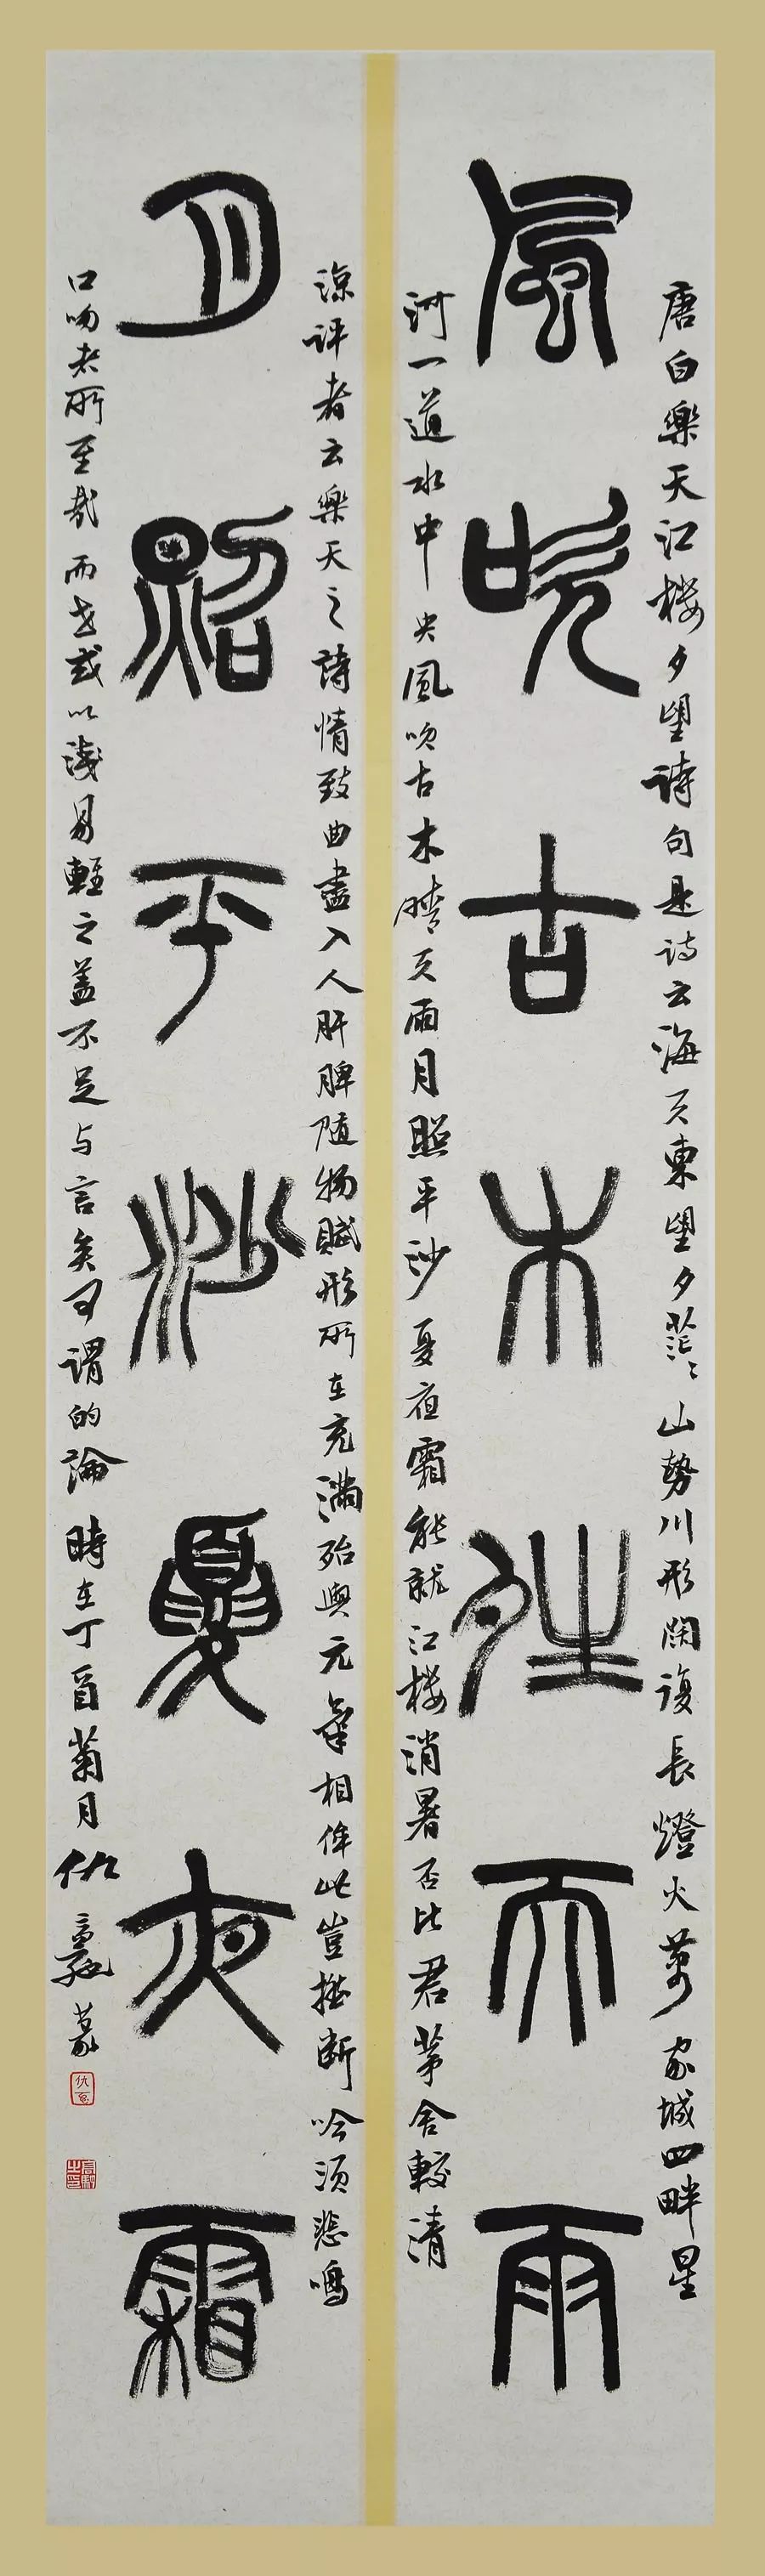 風吹古木晴天雨
月照平沙夏夜霜
唐白樂天江楼夕望詩句是詩云海天東望夕茫〻山勢川形闊復長燈火萬家城四畔星
河一道水中央風吹古木晴天雨月照平沙夏夜霜能就江楼消暑否比君茅舍較清
涼評者云樂天之詩情致曲盡入人肝脾随物賦形所在充滿殆與元氣相侔此豈撚断吟须悲鳴
口吻者所至哉而世或以淺易輕之盖不足与言矣可謂的論時在丁酉菊月仇高馳篆